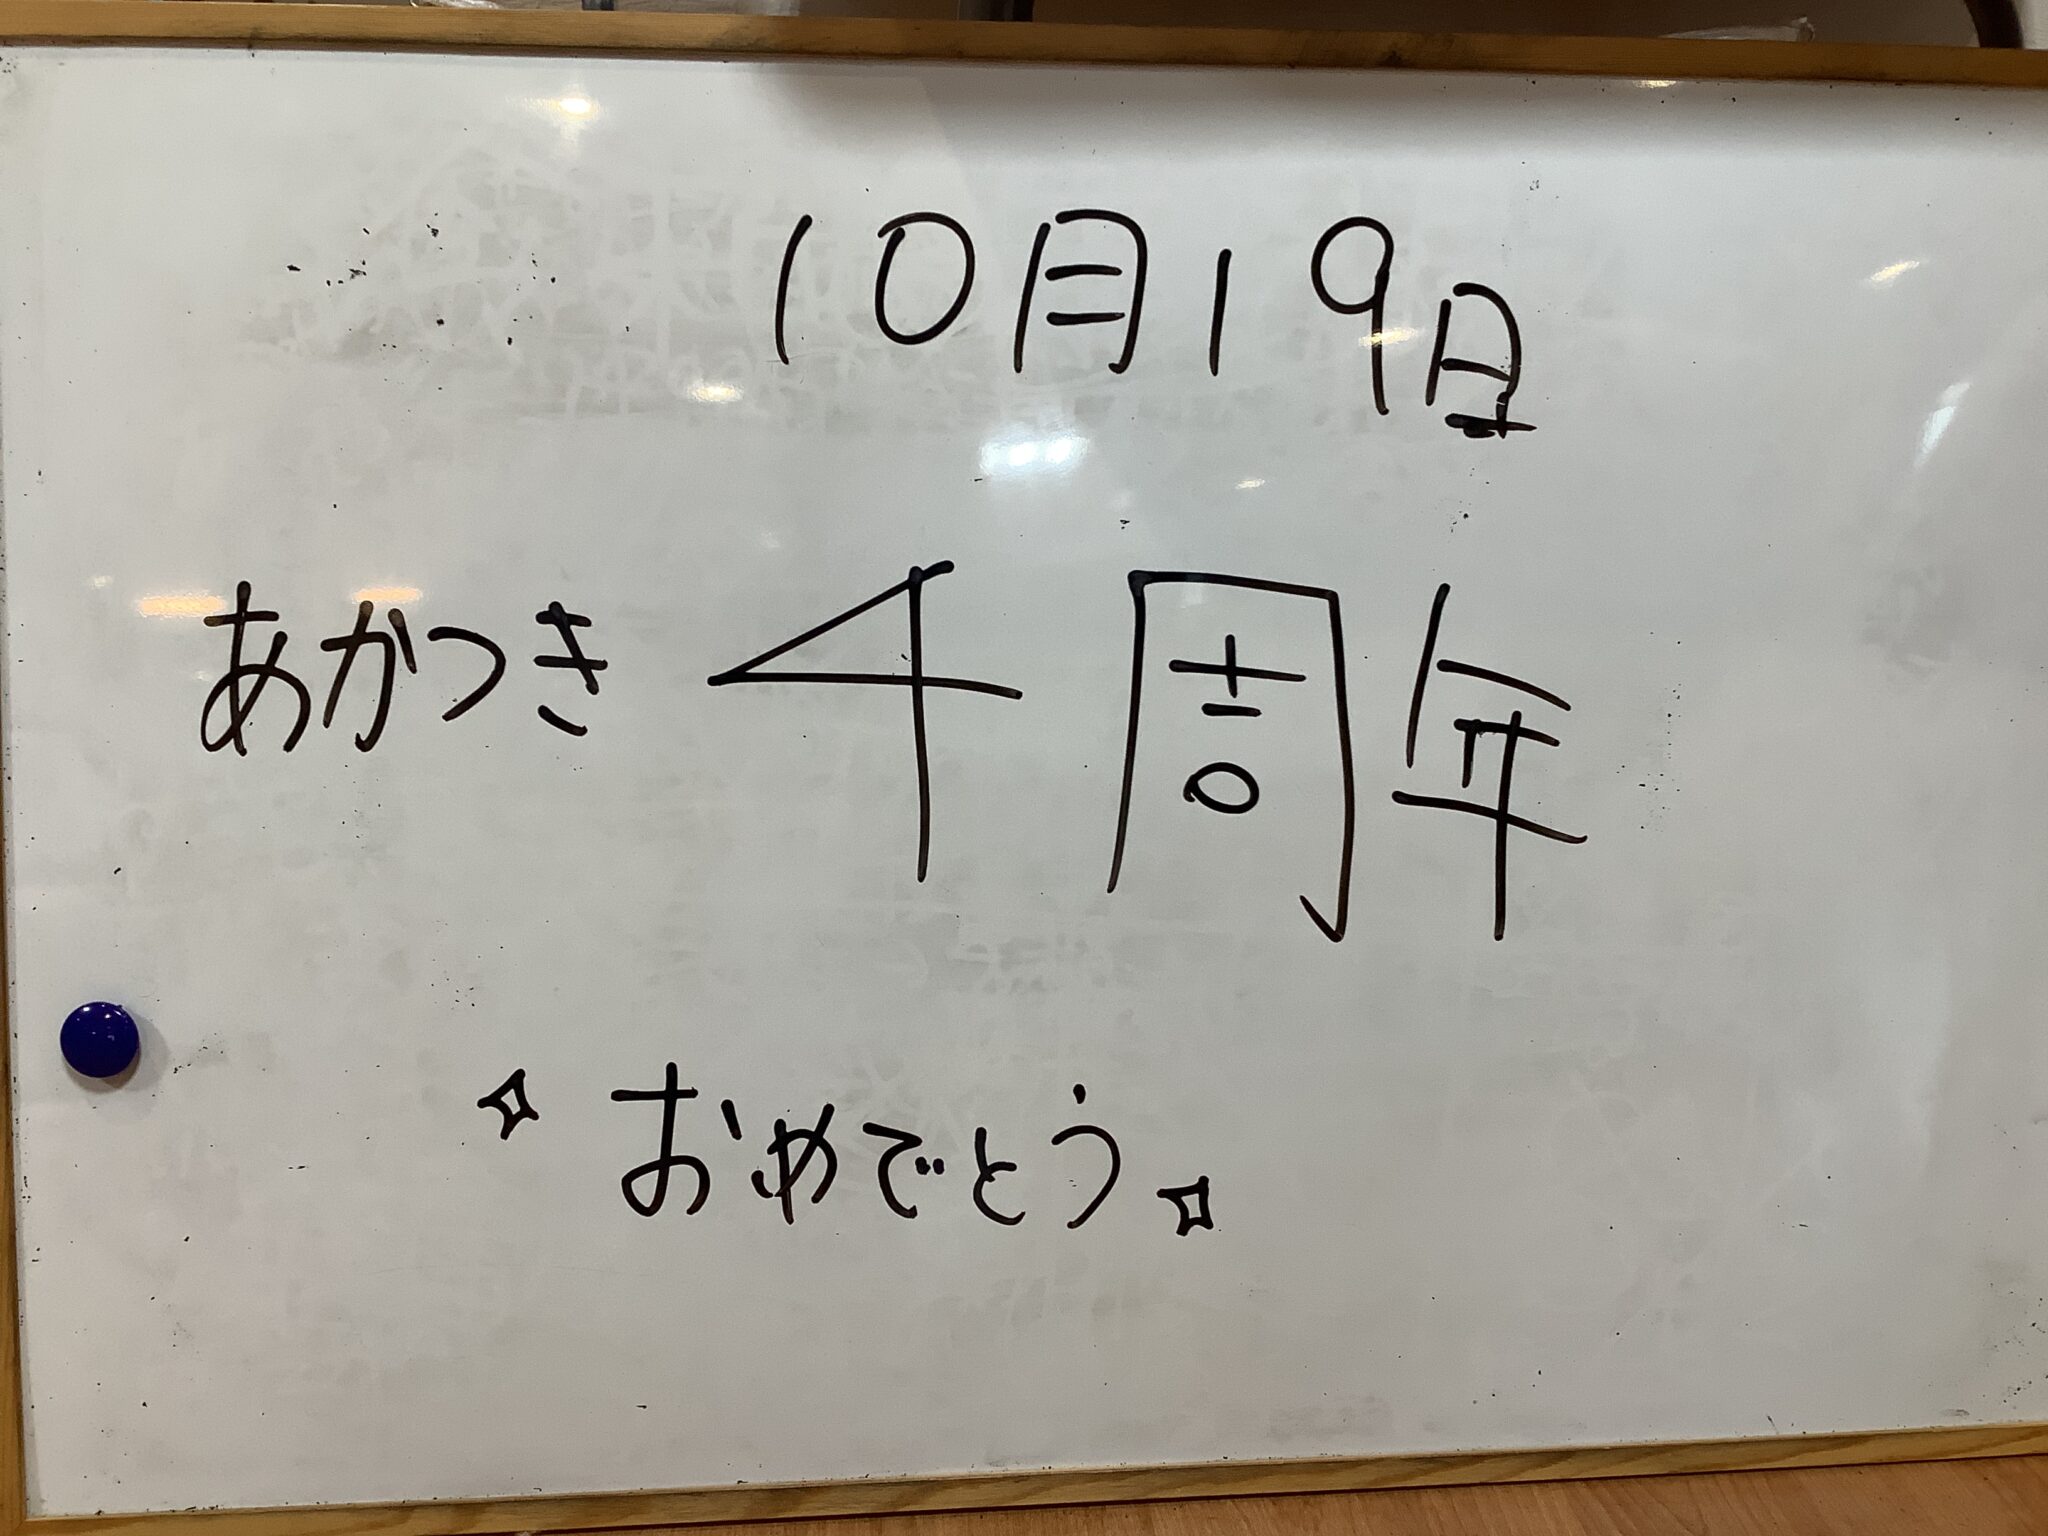 10月19日
あかつき4周年
おめでとう